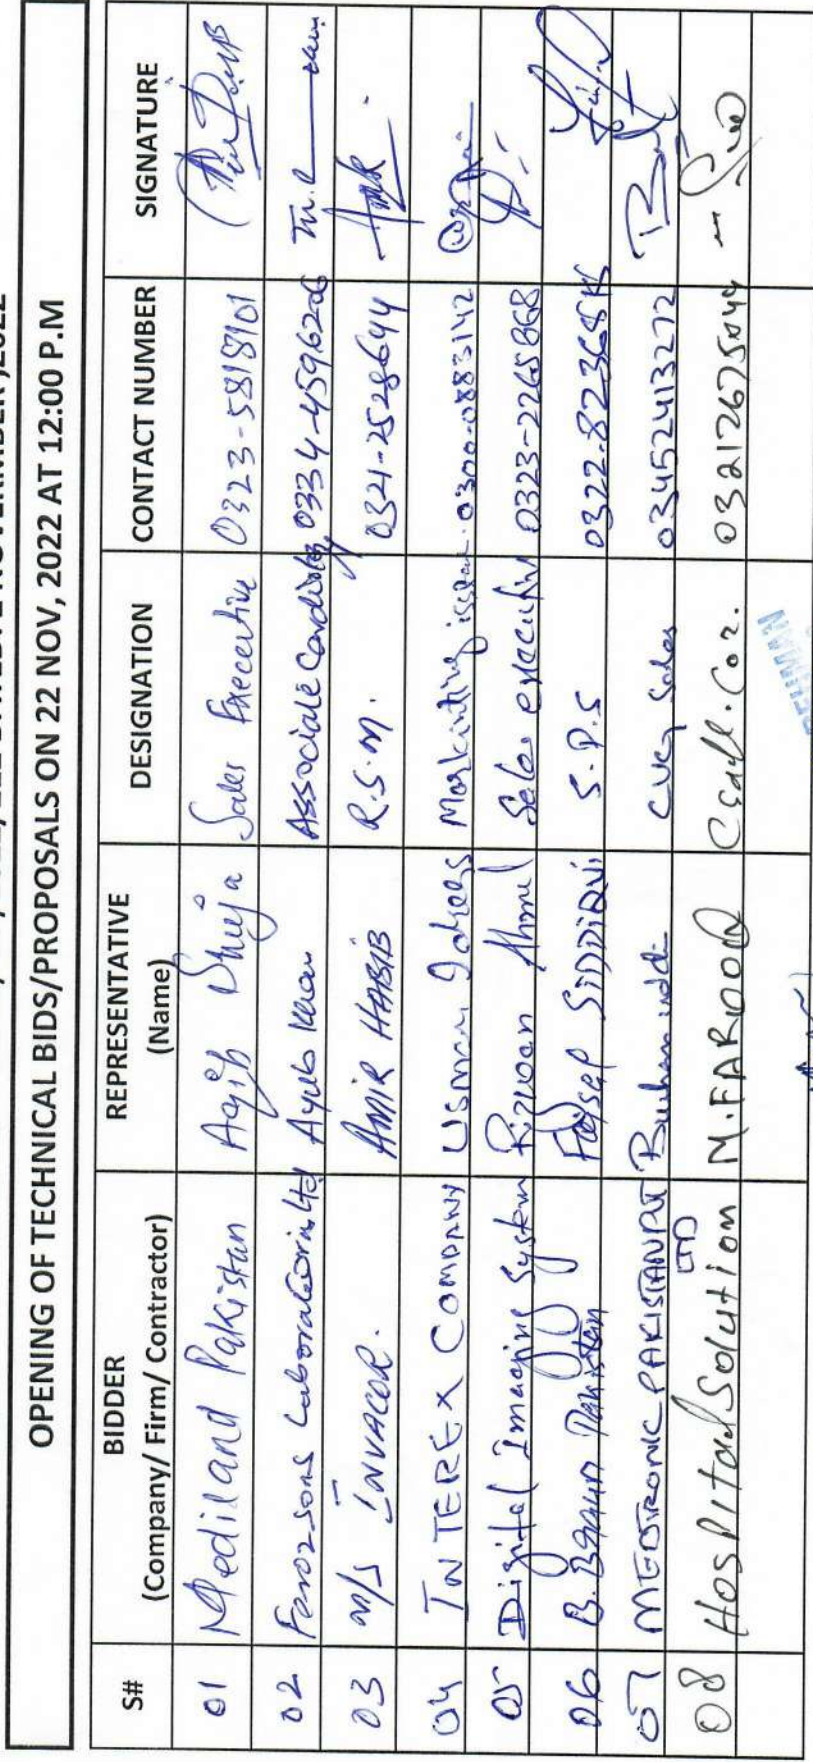 OPENING OF TECHNICAL BIDS/PROPOSALS ON 22 NOV, 2022 AT 12:00 P.M
S# BIDDER (Company/ Firm/ Contractor) REPRESENTATIVE (Name) DESIGNATION CONTACT NUMBER SIGNATURE
01 Mediland Pakistan Aqib Shuja Sales Executive 0323-5818101
02 Ferozsons Laboratories Ltd Ayub Khan Associate Cardiology 0334-4596206
03 M/S INVACOR. AMIR HABIB R.S.M. 0321-2528644
04 INTEREX COMPANY Usman 0300-0883142
05 Digital Imaging System Rizwan Ahmed Sales executive 0323-2265868
06 B. Braun Pakistan Faisal SIDDIQUI S.P.S 0322-82365
07 MEDTRONIC PAKISTAN PVT LTD Burhanuddin CVG Sales 03452413272
08 Hospital Solution M. FAROOQ 03212675044
REHMAN